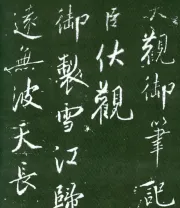 大觀御筆記
臣伏觀
御製雪江歸
遠無波天長